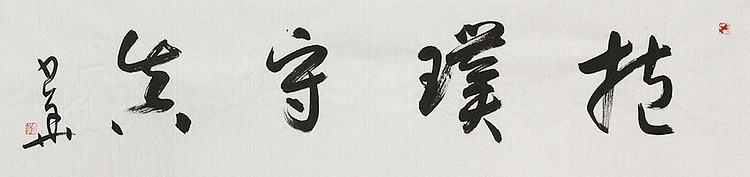 抱璞守真